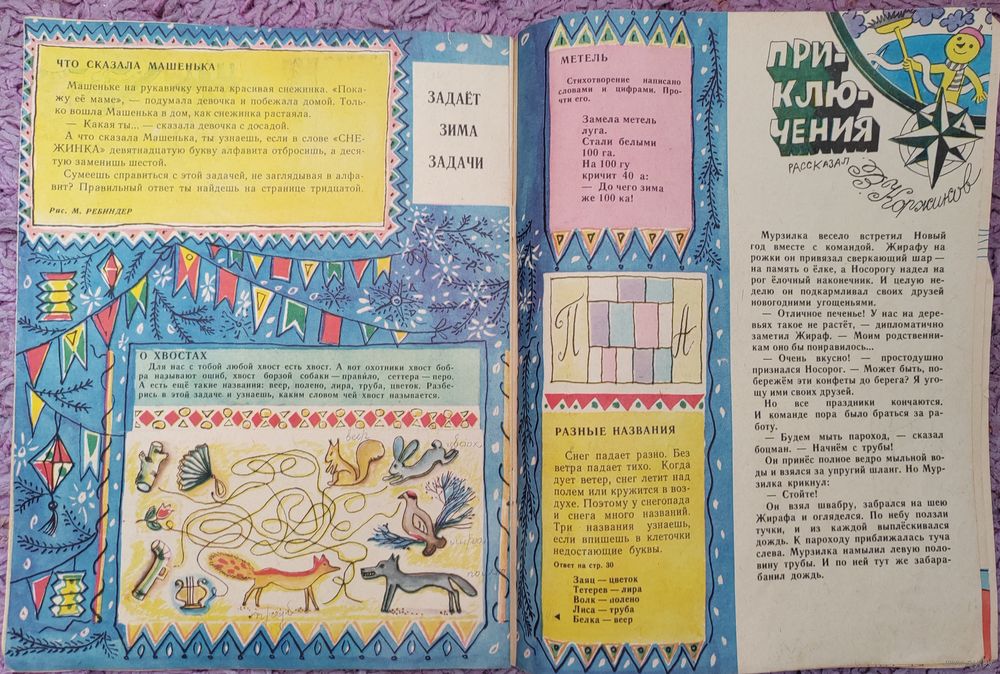 ЧТО СКАЗАЛА МАШЕНЬКА
Машеньке на рукавичку упала красивая снежинка. «Пока-
жу её маме», — подумала девочка и побежала домой. Толь-
ко вошла Машенька в дом, как снежинка растаяла.
— Какая ты... — сказала девочка с досадой.
А что сказала Машенька, ты узнаешь, если в слове «СНЕ-
ЖИНКА» девятнадцатую букву алфавита отбросишь, а деся-
тую заменишь шестой.
Сумеешь справиться с этой задачей, не заглядывая в алфа-
вит? Правильный ответ ты найдешь на странице тридцатой.
Рис. М. РЕБИНДЕР
ЗАДАЁТ
ЗИМА
ЗАДАЧИ
О ХВОСТАХ
Для нас с тобой любой хвост есть хвост. А вот охотники хвост боб-
ра называют ошиб, хвост борзой собаки — прави́ло, сеттера — перо.
А есть ещё такие названия: веер, полено, лира, труба, цветок. Разбе-
рись в этой задаче и узнаешь, каким словом чей хвост называется.
веер
цветок
лира
труба
МЕТЕЛЬ
Стихотворение написано
словами и цифрами. Про-
чти его.
Замела метель
луга.
Стали белыми
100 га.
На 100 гу
кричит 40 а:
— До чего зима
же 100 ка!
П А
РАЗНЫЕ НАЗВАНИЯ
Снег падает разно. Без
ветра падает тихо. Когда
дует ветер, снег летит над
полем или кружится в воз-
духе. Поэтому у снегопада
и снега много названий.
Три названия узнаешь,
если впишешь в клеточки
недостающие буквы.
Ответ на стр. 30
Заяц — цветок
Тетерев — лира
Волк — полено
Лиса — труба
Белка — веер
ПРИ-
КЛЮ-
ЧЕНИЯ
РАССКАЗАЛ
В. Коржиков
Мурзилка весело встретил Новый
год вместе с командой. Жирафу на
рожки он привязал сверкающий шар —
на память о ёлке, а Носорогу надел на
рог ёлочный наконечник. И целую не-
делю он подкармливал своих друзей
новогодними угощеньями.
— Отличное печенье! У нас на дере-
вьях такое не растёт, — дипломатично
заметил Жираф. — Моим родственни-
кам оно бы понравилось...
— Очень вкусно! — простодушно
признался Носорог. — Может быть, по-
бережём эти конфеты до берега? Я уго-
щу ими своих друзей.
Но все праздники кончаются.
И команде пора было браться за ра-
боту.
— Будем мыть пароход, — сказал
боцман. — Начнём с трубы!
Он принёс полное ведро мыльной во-
ды и взялся за упругий шланг. Но Мур-
зилка крикнул:
— Стойте!
Он взял швабру, забрался на шею
Жирафа и огляделся. По небу ползли
тучки, и из каждой выплёскивался
дождь. К пароходу приближалась туча
слева. Мурзилка намылил левую поло-
вину трубы. И по ней тут же забара-
банил дождь.